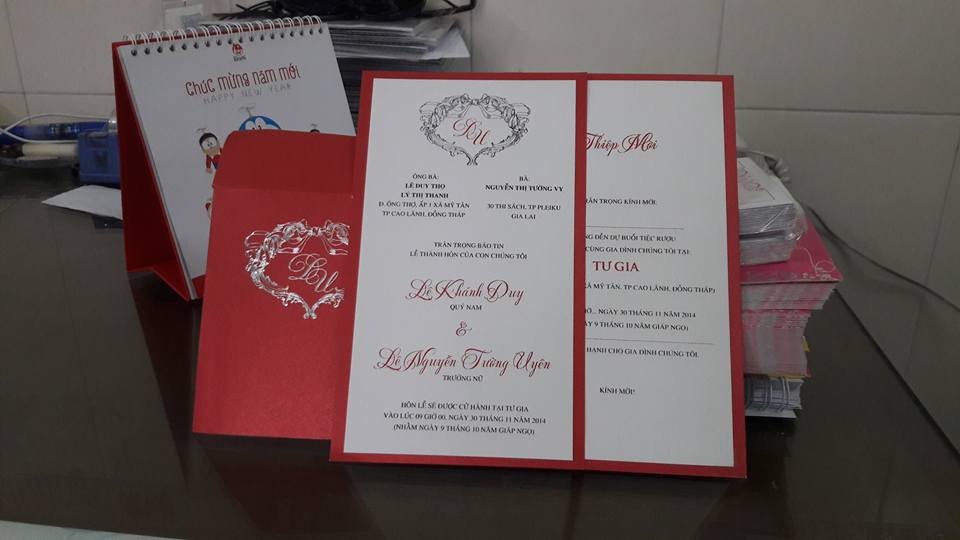 CHÚC MỪNG NĂM MỚI
HAPPY NEW YEAR
DU
DU
ÔNG BÀ:
LÊ DUY THỌ
LÝ THỊ THANH
Đ. ÔNG THỢ, ẤP 1 XÃ MỸ TÂN
TP CAO LÃNH, ĐỒNG THÁP
BÀ:
NGUYỄN THỊ TƯỜNG VY
30 THI SÁCH, TP PLEIKU
GIA LAI
TRÂN TRỌNG BÁO TIN
LỄ THÀNH HÔN CỦA CON CHÚNG TÔI
Lê Khánh Duy
QUÝ NAM
&
Lê Nguyễn Tường Uyên
TRƯỞNG NỮ
HÔN LỄ SẼ ĐƯỢC CỬ HÀNH TẠI TƯ GIA
VÀO LÚC 09 GIỜ 00, NGÀY 30 THÁNG 11 NĂM 2014
(NHẰM NGÀY 9 THÁNG 10 NĂM GIÁP NGỌ)
Thiệp Mời
TRỌNG KÍNH MỜI
ĐẾN DỰ BUỔI TIỆC RƯỢU
CÙNG GIA ĐÌNH CHÚNG TÔI TẠI:
TƯ GIA
XÃ MỸ TÂN, TP CAO LÃNH, ĐỒNG THÁP)
NGÀY 30 THÁNG 11 NĂM 2014
9 THÁNG 10 NĂM GIÁP NGỌ)
HẠNH CHO GIA ĐÌNH CHÚNG TÔI.
KÍNH MỜI!